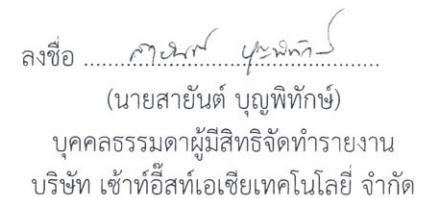 ลงชื่อ ............ สายันต์ บุญพิทักษ์ ............
(นายสายันต์ บุญพิทักษ์)
บุคคลธรรมดาผู้มีสิทธิจัดทำรายงาน
บริษัท เซ้าท์อี๊สท์เอเซียเทคโนโลยี่ จำกัด